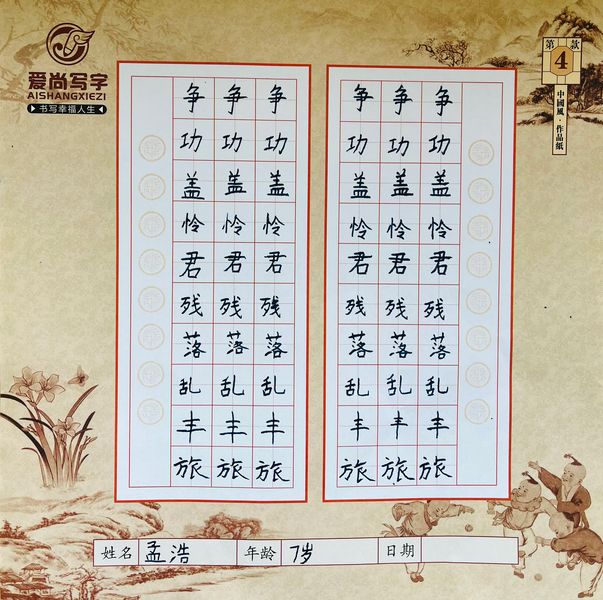 爱尚写字
AISHANGXIEZI
书写幸福人生
第4款
中國風·作品紙
争争争 争争争
功功功 功功功
盖盖盖 盖盖盖
怜怜怜 怜怜怜
君君君 君君君
残残残 残残残
落落落 落落落
乱乱乱 乱乱乱
丰丰丰 丰丰丰
旅旅旅 旅旅旅
姓名 孟浩 年龄 7岁 日期